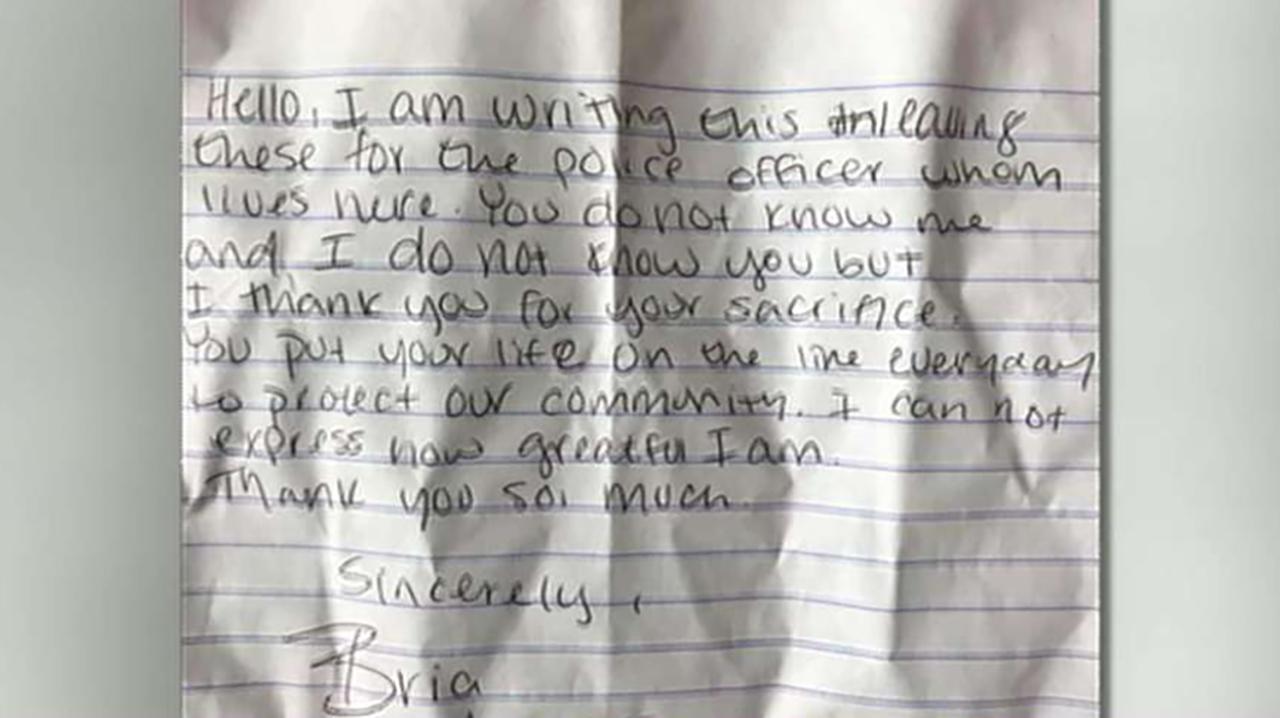 Hello, I am writing this leaving
these for the police officer whom
lives here. You do not know me
and I do not know you but
I thank you for your sacrifice.
You put your life on the line everyday
to protect our community. I can not
express how greatful I am.
Thank you so much.
Sincerely,
Bria